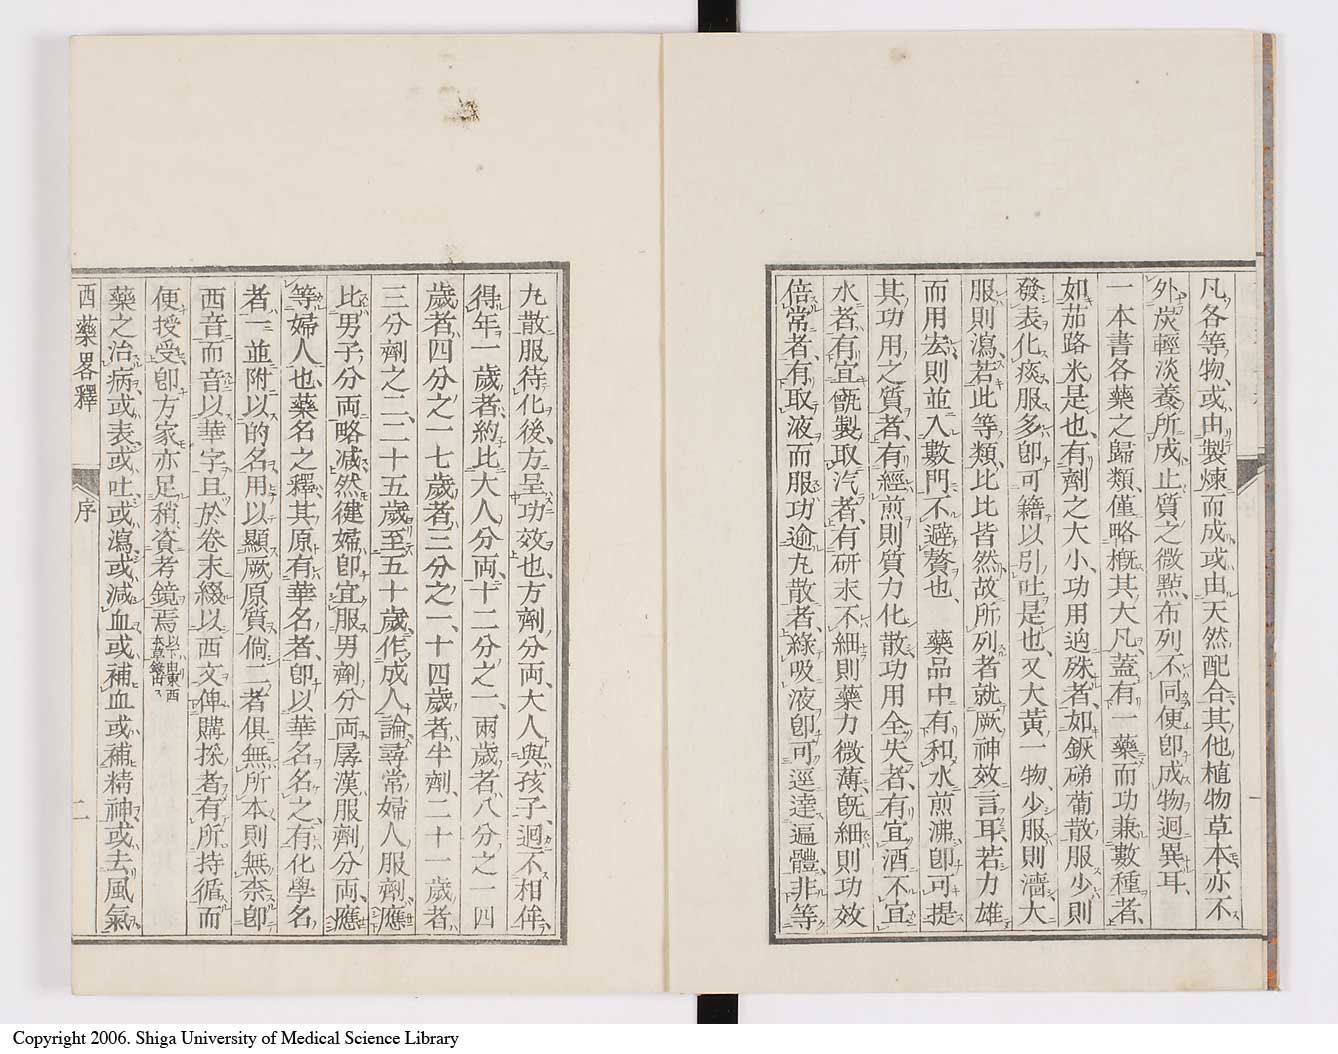 凡各等物、或由製煉而成、或由天然配合、其他植物草本亦不
外炭輕淡養所成、止質之微點、布列不同、便卽成物迥異耳、
一本書各藥之歸類、僅略槪其大凡、蓋有一藥而功兼數種者、
如茄路米是也、有劑之大小、功用逈殊者、如鋉硶蔔散服少則
發表化痰、服多卽可藉以引吐是也、又大黃一物、少服則濇、大
服則瀉、若此等類、比比皆然、故所列者就厥神效言耳、若力雄
而用宏、則並入數門、不避贅也、　藥品中有和水煎沸卽可提
其功用之質者、有經煎則質力化散、功用全失者、有宜酒不宜
水者、有宜甑製取汽者、有研末不細則藥力微薄、旣細則功效
倍常者、有取液而服、功逾丸散者、緣吸液卽可逕達遍體、非等
丸散服待化後、方呈功效也、方劑分兩、大人與孩子、迥不相侔、
得年一歲者、約比大人分兩、十二分之一、兩歲者八分之一、四
歲者四分之一、七歲者三分之一、十四歲者半劑、二十一歲者
三分劑之二、二十五歲至五十歲作成人論、尋常婦人服劑、應
比男子、分兩略減、然健婦卽宜服男劑分兩、孱漢服劑分兩、應
等婦人也、藥名之釋、其原有華名者、卽以華名名之、有化學名
者、一並附以的名、用以顯厥原質、倘二者俱無所本、則無柰卽
西音而音以華字、且於卷末綴以西文、俾購採者有所持循、而
便授受、卽方家亦足稍資考鏡焉、以下由東西本草錄出
藥之治病、或表、或吐、或瀉、或減血、或補血、或補精神、或去風氣
西藥畧釋　序　二
Copyright 2006. Shiga University of Medical Science Library